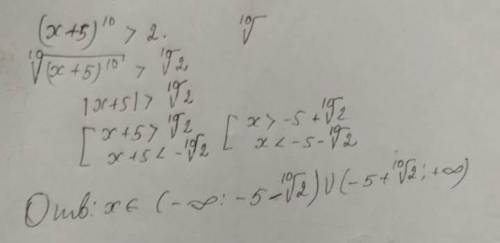 (x+5)¹⁰ > 2. ¹⁰√
¹⁰√(x+5)¹⁰ > ¹⁰√2
|x+5| > ¹⁰√2
[ x+5 > ¹⁰√2 [ x > -5 + ¹⁰√2
x+5 < -¹⁰√2 x < -5 - ¹⁰√2
Отв: x ∈ (-∞; -5 - ¹⁰√2) ∪ (-5 + ¹⁰√2; +∞)